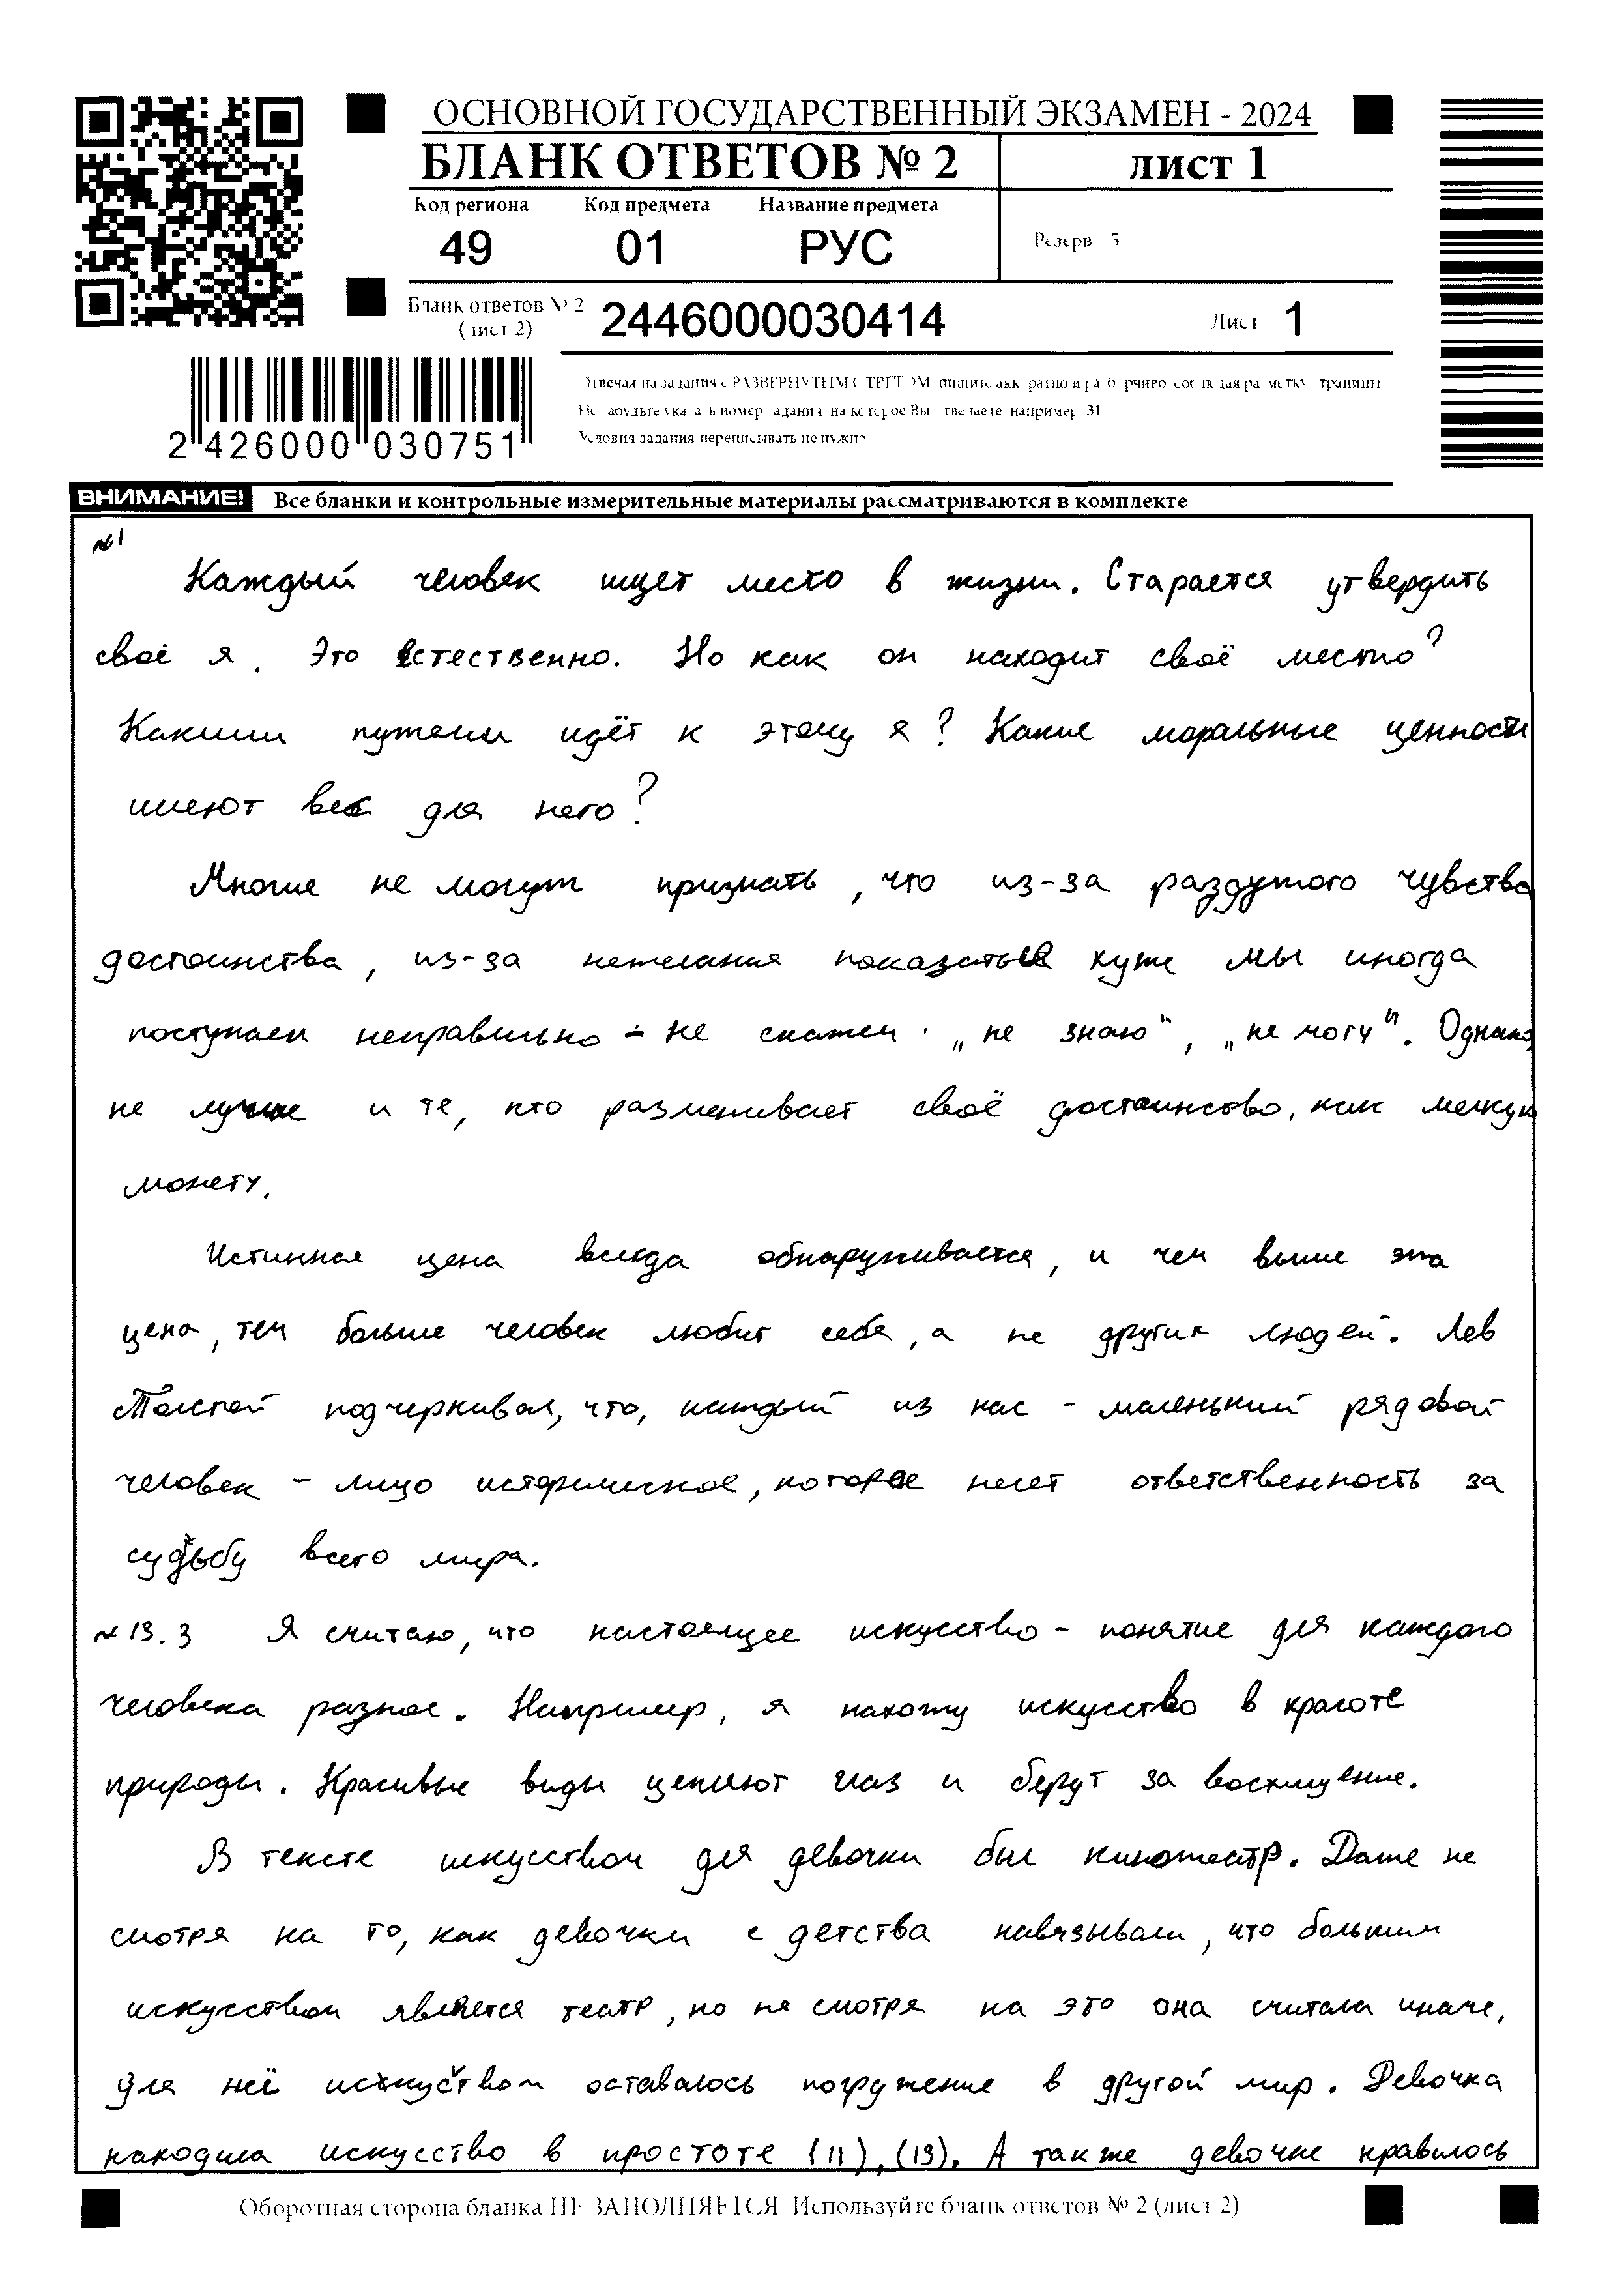 ОСНОВНОЙ ГОСУДАРСТВЕННЫЙ ЭКЗАМЕН - 2024
БЛАНК ОТВЕТОВ № 2
лист 1
Код региона Код предмета Название предмета
49 01 РУС
Резерв 5
Бланк ответов № 2
(лист 2)
2446000030414
Лист 1
2 426000 030751
Отвечая на задания с РАЗВЕРНУТЫМ ОТВЕТОМ, пишите аккуратно и разборчиво, соблюдая разметку страницы
Не забудьте указать номер задания, на которое Вы отвечаете, например 31
Условия задания переписывать не нужно
ВНИМАНИЕ! Все бланки и контрольные измерительные материалы рассматриваются в комплекте
№1
Каждый человек ищет место в жизни. Старается утвердить
своё я. Это естественно. Но как он находит своё место?
Какими путями идёт к этому я? Какие моральные ценности
имеют вес для него?
Многие не могут признать, что из-за раздутого чувства
достоинства, из-за нежелания показаться хуже мы иногда
поступаем неправильно - не скажем „не знаю", „не могу". Однако
не лучше и те, кто разменивает своё достоинство, как мелкую
монету.
Истинная цена всегда обнаруживается, и чем выше эта
цена, тем больше человек любит себя, а не других людей. Лев
Толстой подчеркивал, что, каждый из нас - маленький рядовой
человек - лицо историческое, которое несет ответственность за
судьбу всего мира.
№ 13.3 Я считаю, что настоящее искусство - понятие для каждого
человека разное. Например, я нахожу искусство в красоте
природы. Красивые виды цепляют глаз и берут за восхищение.
В тексте искусством для девочки был кинотеатр. Даже не
смотря на то, как девочки с детства навязывали, что большим
искусством является театр, но не смотря на это она считала иначе,
для неё искуством оставалось погружение в другой мир. Девочка
находила искусство в простоте (11), (13). А также девочке нравилось
Оборотная сторона бланка НЕ ЗАПОЛНЯЕТСЯ. Используйте бланк ответов № 2 (лист 2)